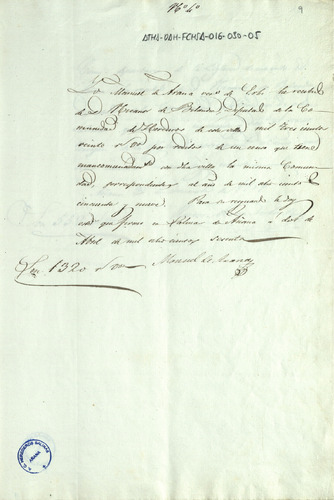 Nº 4º
9
ATHA-DAH-FCMSA-016-050-05
Yo Manuel de Arana vecº de Lasª he recibido
de Dn Nicanor de Belandia Diputado de la Co
munidad de Herederos de esta villa mil tres cientos
veinte rs vn por reditos de un censo que tiene
mancomunidad con dha villa la misma Comuni
dad, correspondientes al año de mil ocho cientos
cincuenta y nueve. Para su resguardo le doy
este que firmo en Salinas de Añana á dos de
Abril de mil ochocientos sesenta
Son 1320 rs vn
Manuel de Arana
HEREDEROS SALINAS
AÑANA